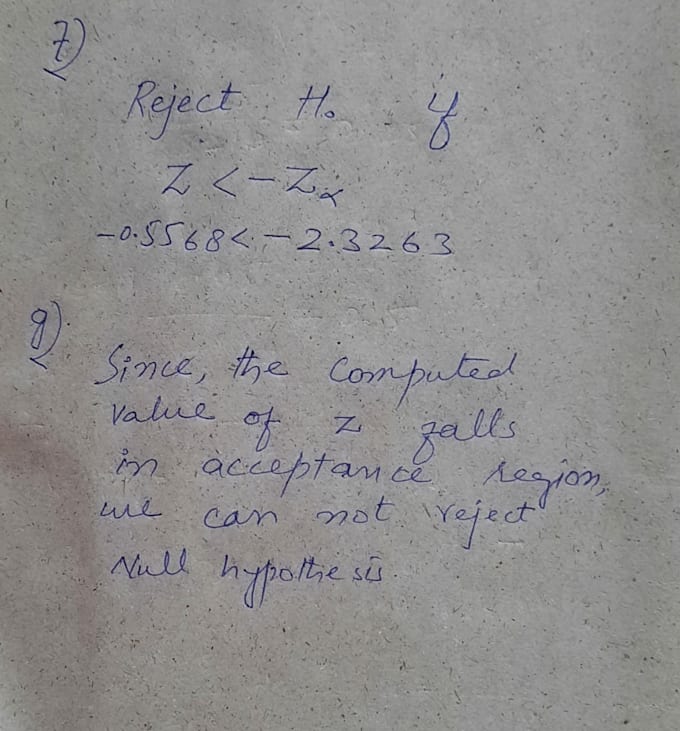 7)
Reject H₀ if
Z < -Zα
-0.5568 < -2.3263
9)
Since, the computed
value of z falls
in acceptance region,
we can not reject
Null hypothesis.